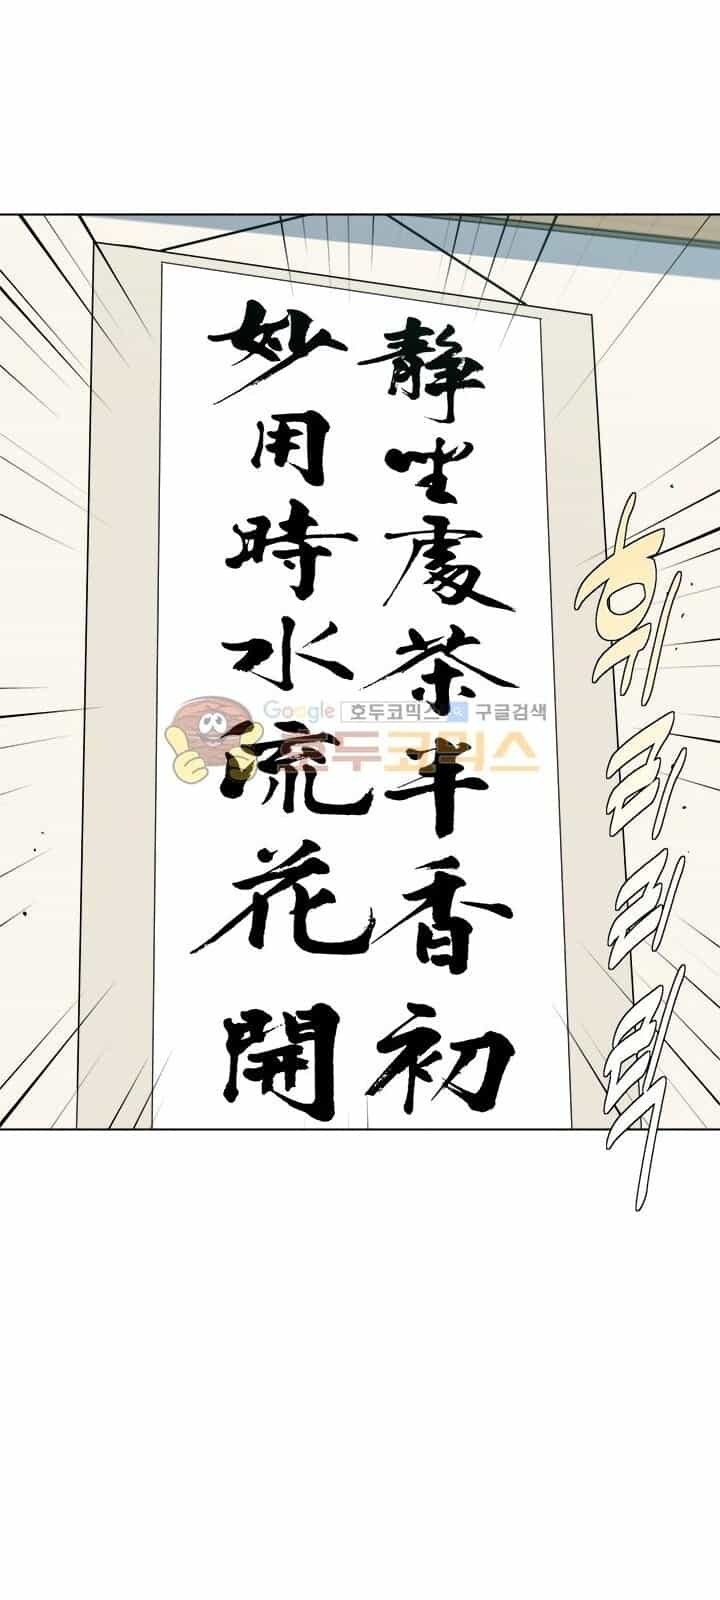 靜坐處茶半香初
妙用時水流花開
휘리리릭
Google 호두코믹스 구글검색
호두코믹스